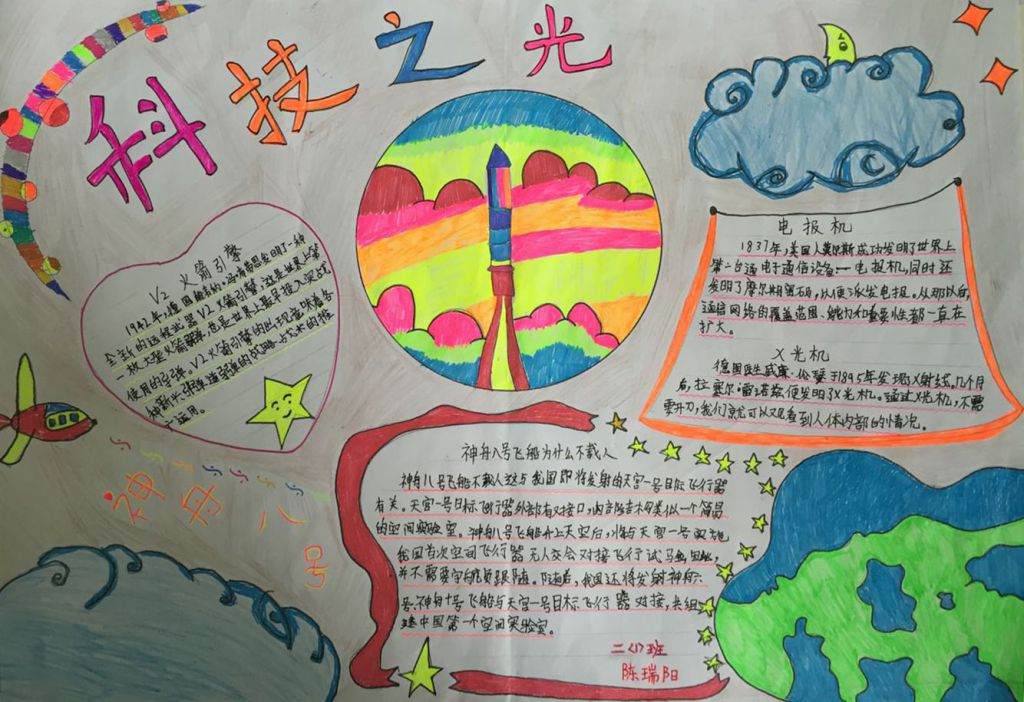 科技之光
V2 火箭引擎
1942年,德国
一种
全新的远程武器V2火箭引擎,这是世界上第
一枚大型火箭导弹,也是世界上最早投入实战
使用的导弹。V2火箭引擎的出现意味着各
种新光
运用。
电报机
1837年,美国人莫尔斯成功发明了世界上
第一台通电子通信设备——电报机,同时还
发明了摩尔斯密码,以便派发电报。从那以后,
通信网络的覆盖范围、能力和重要性都一直在
扩大。
X光机
德国医生威廉·伦琴于1895年发现X射线,几个月
后,拉塞尔·雷诺兹便发明了X光机。通过X光机,不需
要开刀,我们就可以观看到人体内部的情况。
神舟八号
神舟八号飞船为什么不载人
神舟八号飞船不载人这与我国即将发射的天宫一号目标飞行器
有关。天宫一号目标飞行器外部有对接口,内部结构类似一个简易
的空间实验室。神舟八号飞船升上天空后,将与天宫一号实施
我国首次空间飞行器无人交会对接飞行试
并不需要宇航员跟随。随着,我国还将发射神舟
号、神舟十号飞船与天宫一号目标飞行器对接,共组
建中国第一个空间实验室。
二(1)班
陈瑞阳